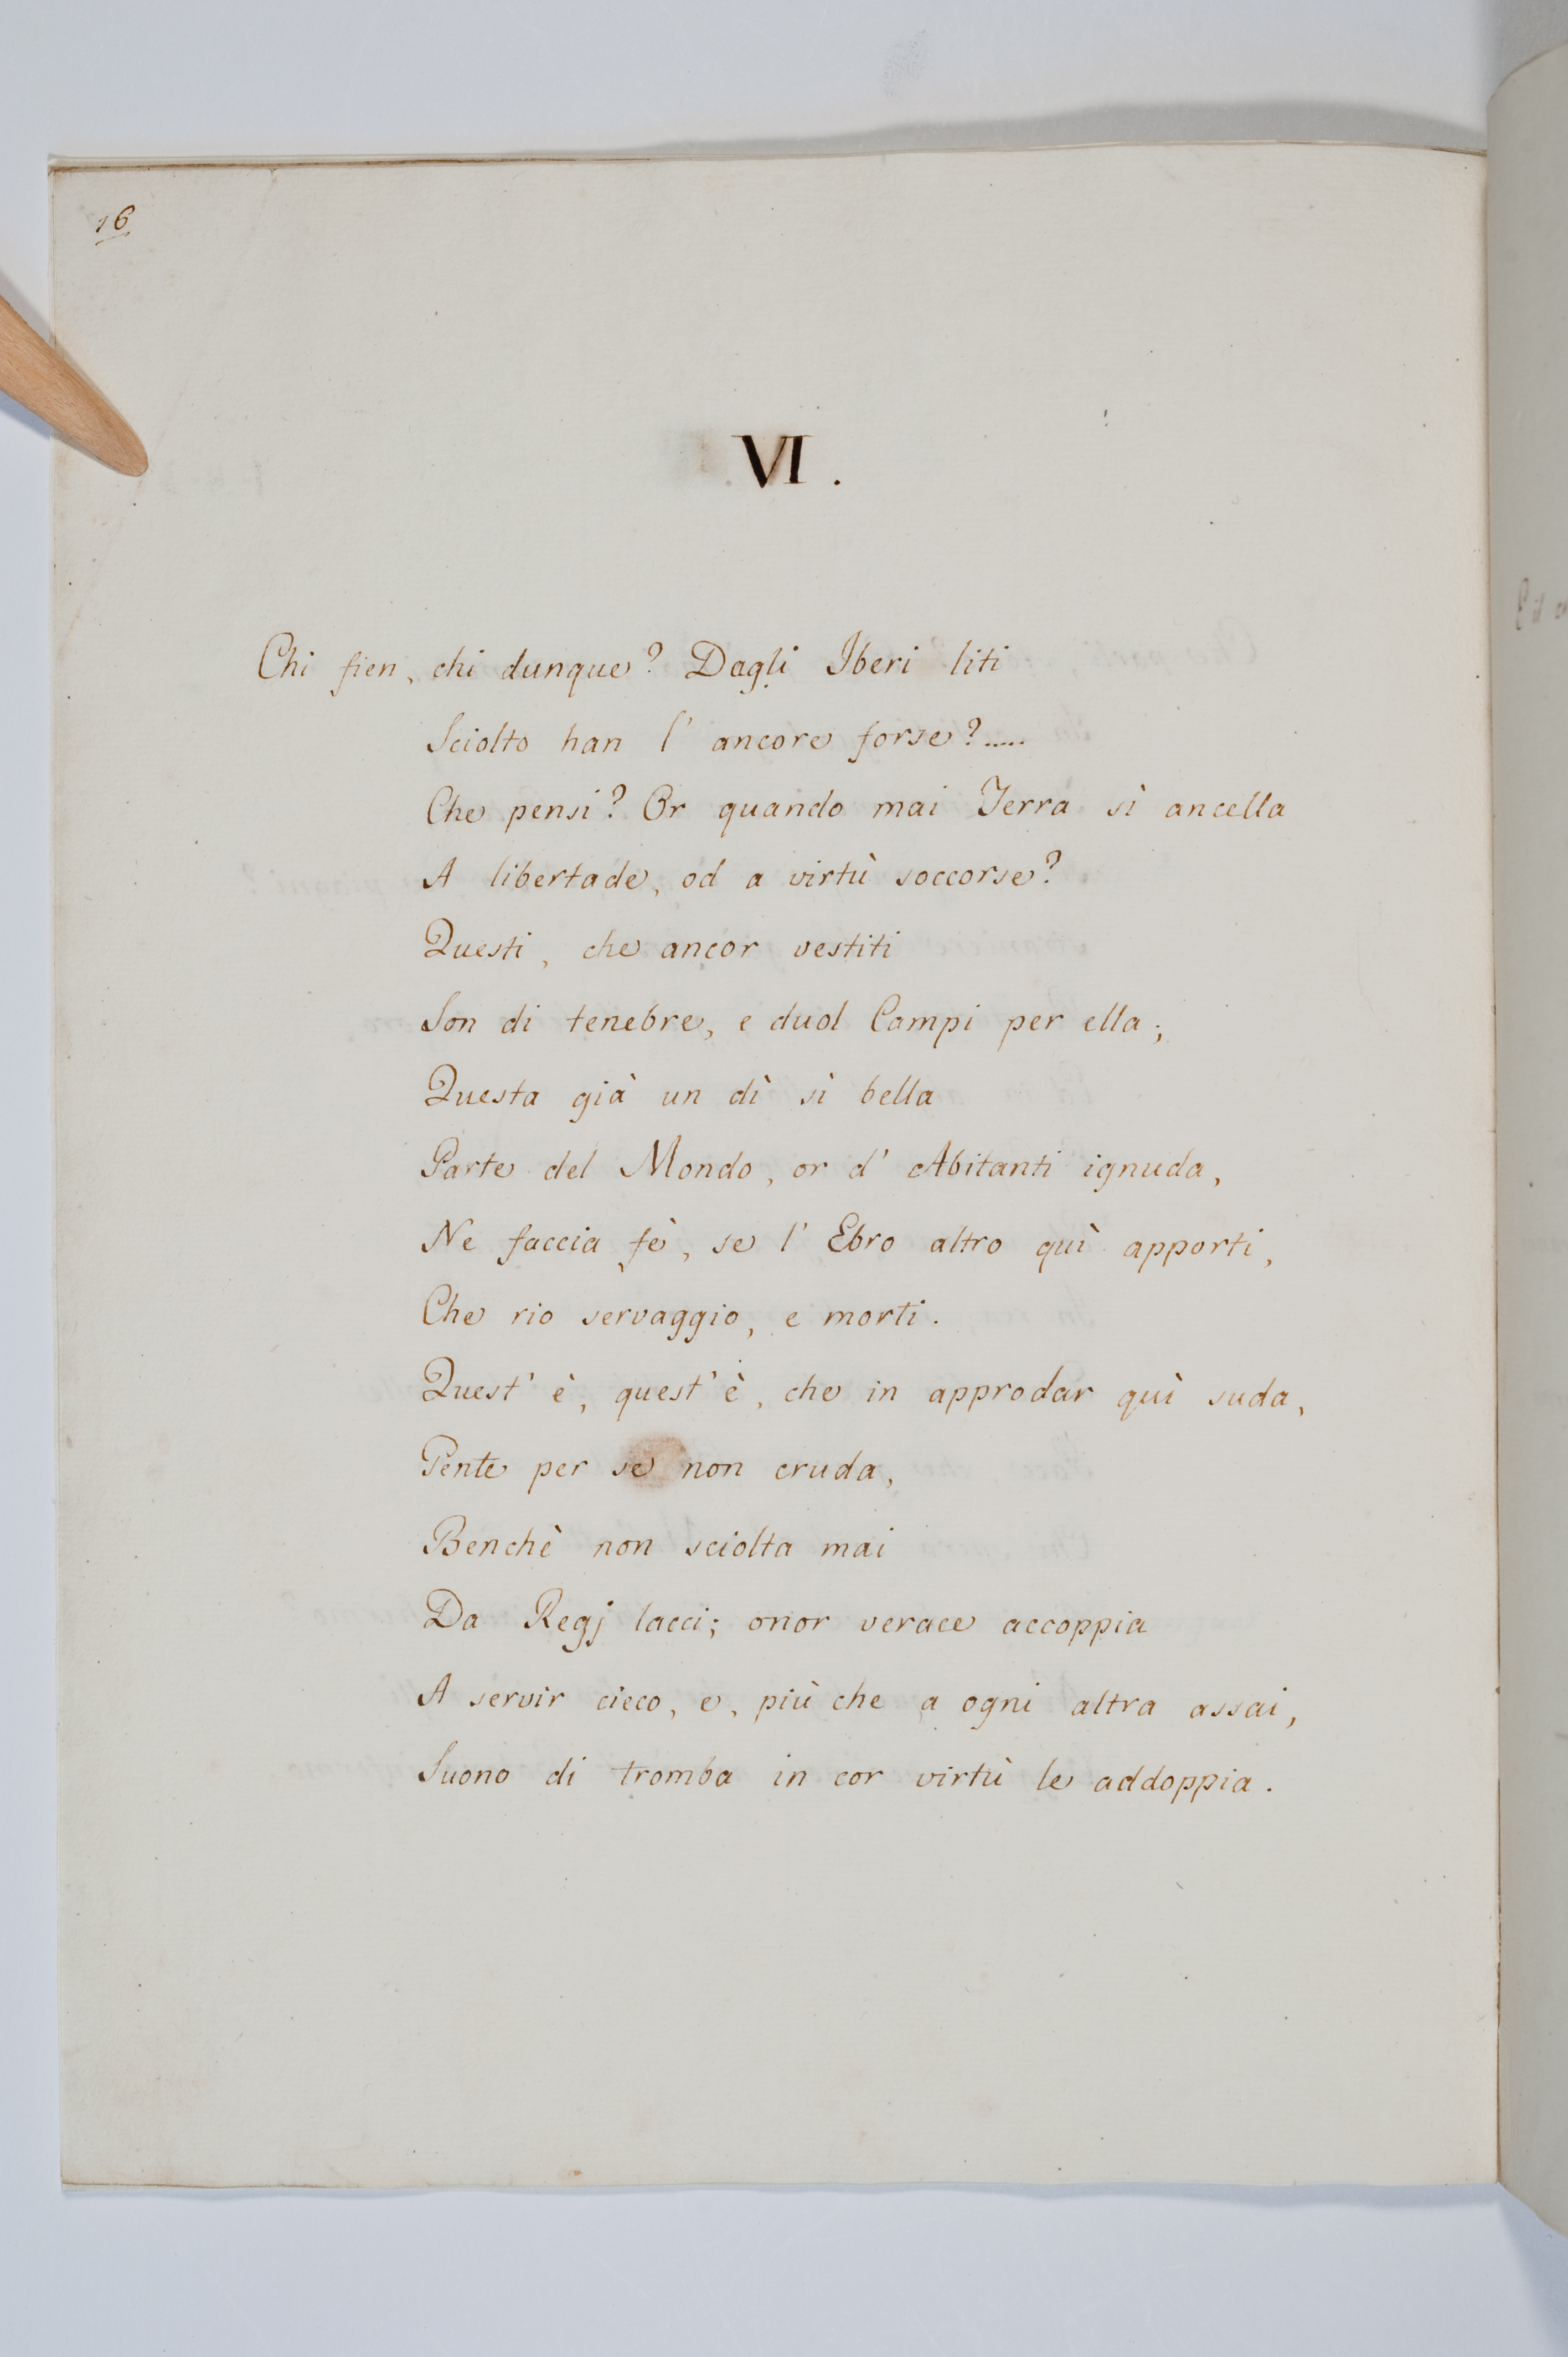 16.
VI.
Chi fien, chi dunque? Dagli Iberi liti
Sciolto han l' ancore forse?.....
Che pensi? Or quando mai Terra sì ancella
A libertade, od a virtù soccorse?
Questi, che ancor vestiti
Son di tenebre, e duol Campi per ella;
Questa già un dì sì bella
Parte del Mondo, or d' Abitanti ignuda,
Ne faccia fè, se l' Ebro altro quì apporti,
Che rio servaggio, e morti.
Quest' è, quest' è, che in approdar quì suda,
Gente per se non cruda,
Benchè non sciolta mai
Da Regj lacci; onor verace accoppia
A servir cieco, e, più che a ogni altra assai,
Suono di tromba in cor virtù le addoppia.